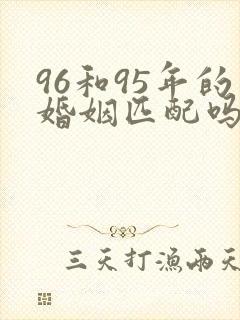 96和95年的
婚姻匹配吗
三天打漁兩天